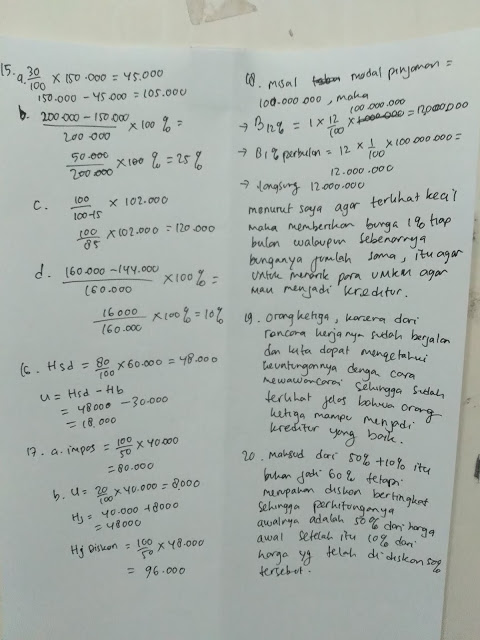 15. a. 30/100 x 150.000 = 45.000
150.000 - 45.000 = 105.000
b. 200.000 - 150.000 / 200.000 x 100 % =
50.000 / 200.000 x 100 % = 25 %
c. 100 / 100-15 x 102.000
100/85 x 102.000 = 120.000
d. (160.000 - 144.000 / 160.000) x 100% =
16000 / 160.000 x 100% = 10%
16. Hsd = 80/100 x 60.000 = 48.000
u = Hsd - Hb
= 48000 - 30.000
= 18.000
17. a. impas = 100/50 x 40.000
= 80.000
b. u = 20/100 x 40.000 = 8.000
Hj = 40.000 + 8000
= 48000
Hj Diskon = 100/50 x 48.000
= 96.000
18. misal modal pinjaman =
100.000.000, maka
→ B 12% = 1 x 12/100 x 100.000.000 = 12.000.000
→ B 1% perbulan = 12 x 1/100 x 100.000.000 =
12.000.000
→ langsung 12.000.000
menurut saya agar terlihat kecil
maka memberikan bunga 1% tiap
bulan walaupun sebenarnya
bunganya jumlah sama, itu agar
untuk menarik para UMKM agar
mau menjadi kreditur.
19. orang ketiga, karena dari
rancana kerjanya sudah berjalan
dan kita dapat mengetahui
keuntungannya dengan cara
mewawancarai sehingga sudah
terlihat jelas bahwa orang
ketiga mampu menjadi
kreditur yang baik.
20. Maksud dari 50% + 10% itu
bukan jadi 60% tetapi
merupakan diskon bertingkat
sehingga perhitunganya
awalnya adalah 50% dari harga
awal setelah itu 10% dari
harga yg telah di diskon 50%
tersebut.